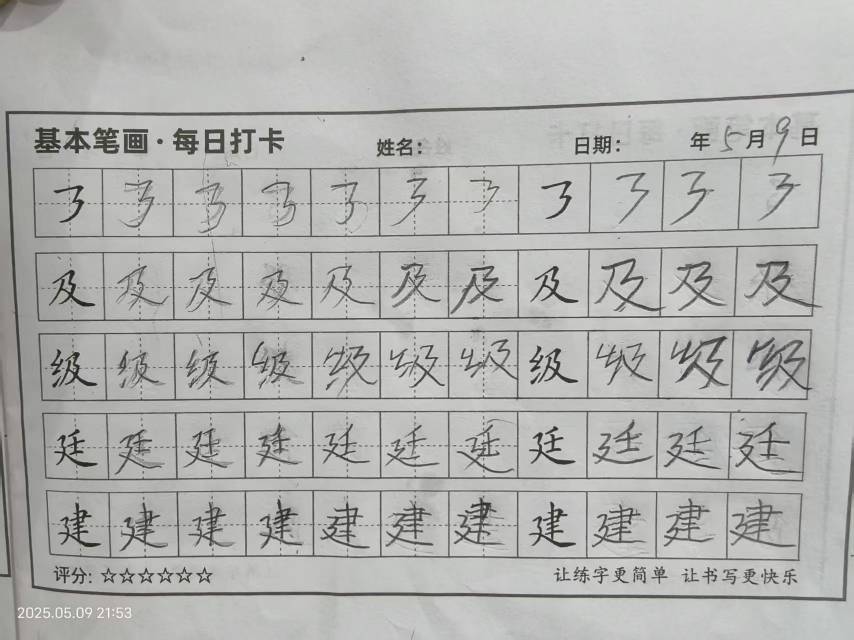 基本笔画·每日打卡 姓名： 日期： 年5月9日
㇋ ㇋ ㇋ ㇋ ㇋ ㇋ ㇋ ㇋ ㇋ ㇋ ㇋
及 及 及 及 及 及 及 及 及 及 及
级 级 级 级 级 级 级 级 级 级 级
廷 廷 廷 廷 廷 廷 廷 廷 廷 廷 廷
建 建 建 建 建 建 建 建 建 建 建
评分：☆☆☆☆☆☆ 让练字更简单 让书写更快乐
2025.05.09 21:53